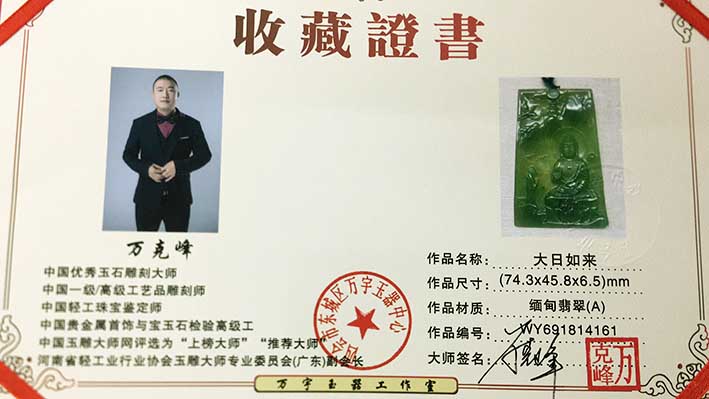 收藏證書
万克峰
中国优秀玉石雕刻大师
中国一级/高级工艺品雕刻师
中国轻工珠宝鉴定师
中国贵金属首饰与宝玉石检验高级工
中国玉雕大师网评选为“上榜大师”“推荐大师”
河南省轻工业行业协会玉雕大师专业委员会(广东)副会长
作品名称: 大日如来
作品尺寸: (74.3x45.8x6.5)mm
作品材质: 缅甸翡翠(A)
作品编号: WY691814161
大师签名:
万克峰
市东城区万宇玉器中心
万宇玉器工作室